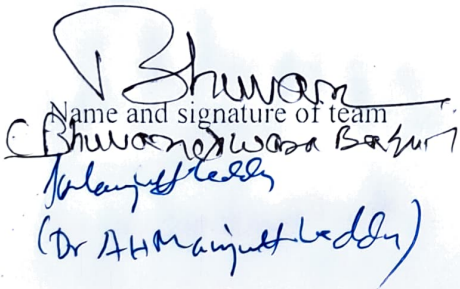 Bhuvan
Name and signature of team
C Bhuvaneswara
Reddy
(Dr AH Manjunath Reddy)